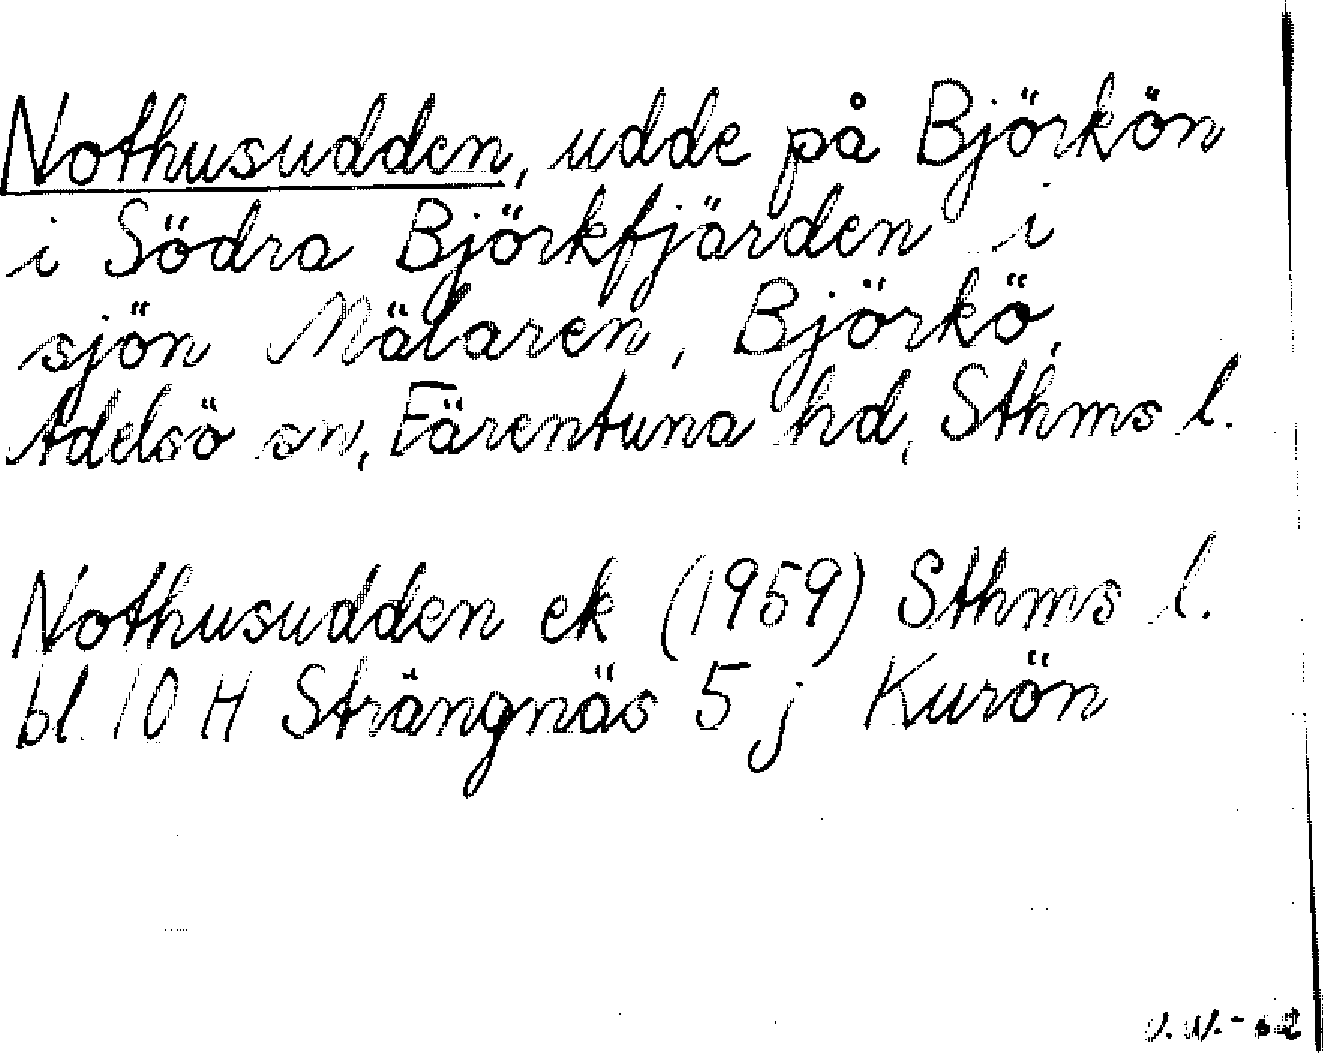 Nothusudden, udde på Björkön
i Södra Björkfjärden i
sjön Mälaren, Björkö,
Adelsö sn, Färentuna hd, Sthms l.
Nothusudden ek (1959) Sthms l.
bl 10 H Strängnäs 5 j Kurön